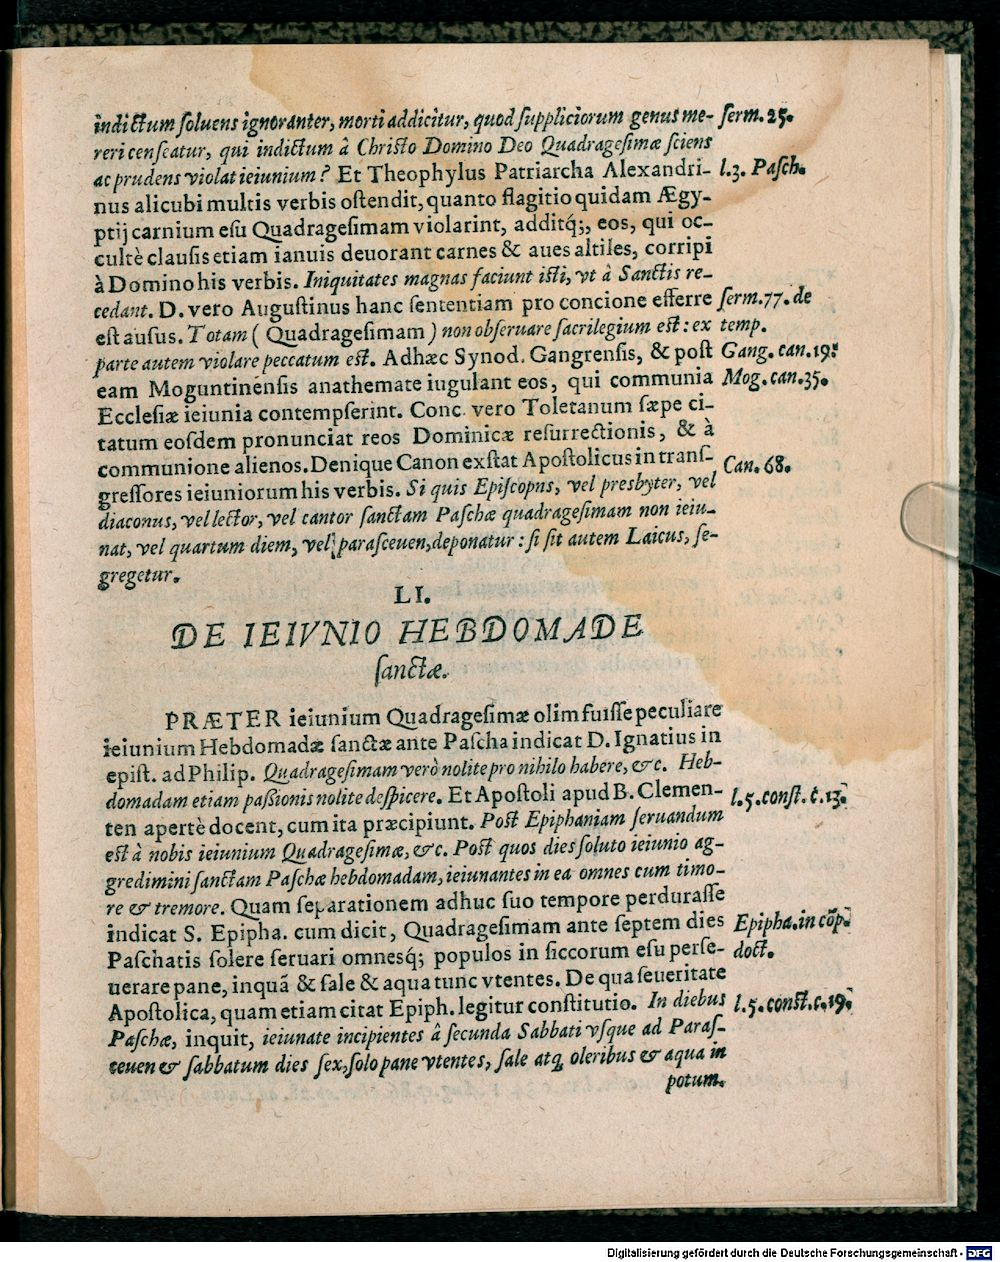 indictum ſoluens ignoranter, morti addicitur, quod ſuppliciorum genus me- ſerm. 25.
reri cenſeatur, qui indictum à Chriſto Domino Deo Quadrageſimæ ſciens
ac prudens violat ieiunium? Et Theophylus Patriarcha Alexandri- l.3. Paſch.
nus alicubi multis verbis oſtendit, quanto flagitio quidam Ægy-
ptij carnium eſu Quadrageſimam violarint, additq́;, eos, qui oc-
cultè clauſis etiam ianuis deuorant carnes & aues altiles, corripi
à Domino his verbis. Iniquitates magnas faciunt iſti, vt à Sanctis re-
cedant. D. vero Auguſtinus hanc ſententiam pro concione efferre ſerm.77. de
eſt auſus. Totam ( Quadrageſimam ) non obſeruare ſacrilegium eſt: ex temp.
parte autem violare peccatum eſt. Adhæc Synod. Gangrenſis, & poſt Gang. can.19.
eam Moguntinenſis anathemate iugulant eos, qui communia Mog. can.35.
Eccleſiæ ieiunia contempſerint. Conc. vero Toletanum ſæpe ci-
tatum eoſdem pronunciat reos Dominicæ reſurrectionis, & à
communione alienos. Denique Canon exſtat Apoſtolicus in tranſ- Can. 68.
greſſores ieiuniorum his verbis. Si quis Epiſcopus, vel presbyter, vel
diaconus, vel lector, vel cantor ſanctam Paſchæ quadrageſimam non ieiu-
nat, vel quartum diem, vel paraſceuen, deponatur: ſi ſit autem Laicus, ſe-
gregetur.
LI.
DE IEIVNIO HEBDOMADE
ſanctæ.
PRÆTER ieiunium Quadrageſimæ olim fuiſſe peculiare
ieiunium Hebdomadæ ſanctæ ante Paſcha indicat D. Ignatius in
epiſt. ad Philip. Quadrageſimam verò nolite pro nihilo habere, &c. Heb-
domadam etiam paſſionis nolite deſpicere. Et Apoſtoli apud B. Clemen- l.5.conſt. c.13.
ten apertè docent, cum ita præcipiunt. Poſt Epiphaniam ſeruandum
eſt à nobis ieiunium Quadrageſimæ, &c. Poſt quos dies ſoluto ieiunio ag-
gredimini ſanctam Paſchæ hebdomadam, ieiunantes in ea omnes cum timo-
re & tremore. Quam ſeparationem adhuc ſuo tempore perduraſſe
indicat S. Epipha. cum dicit, Quadrageſimam ante ſeptem dies Epipha. in cōp.
Paſchatis ſolere ſeruari omnesq́; populos in ſiccorum eſu perſe- doct.
uerare pane, inquā & ſale & aqua tunc vtentes. De qua ſeueritate
Apoſtolica, quam etiam citat Epiph. legitur conſtitutio. In diebus l.5.conſt.c.19.
Paſchæ, inquit, ieiunate incipientes à ſecunda Sabbati vſque ad Paraſ-
ceuen & ſabbatum dies ſex, ſolo pane vtentes, ſale atq; oleribus & aqua in
potum.
Digitalisierung gefördert durch die Deutsche Forschungsgemeinschaft - DFG